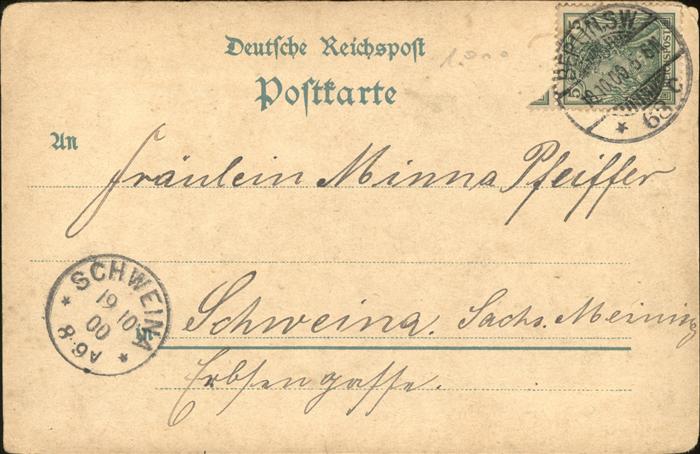 Deutsche Reichspost
Postkarte
BERLIN.SW
68 c
An
Fräulein Minna Pfeiffer
SCHWEINA
19 10
00
A6-8
Schweina. Sachs. Meining.
Erbsengasse.